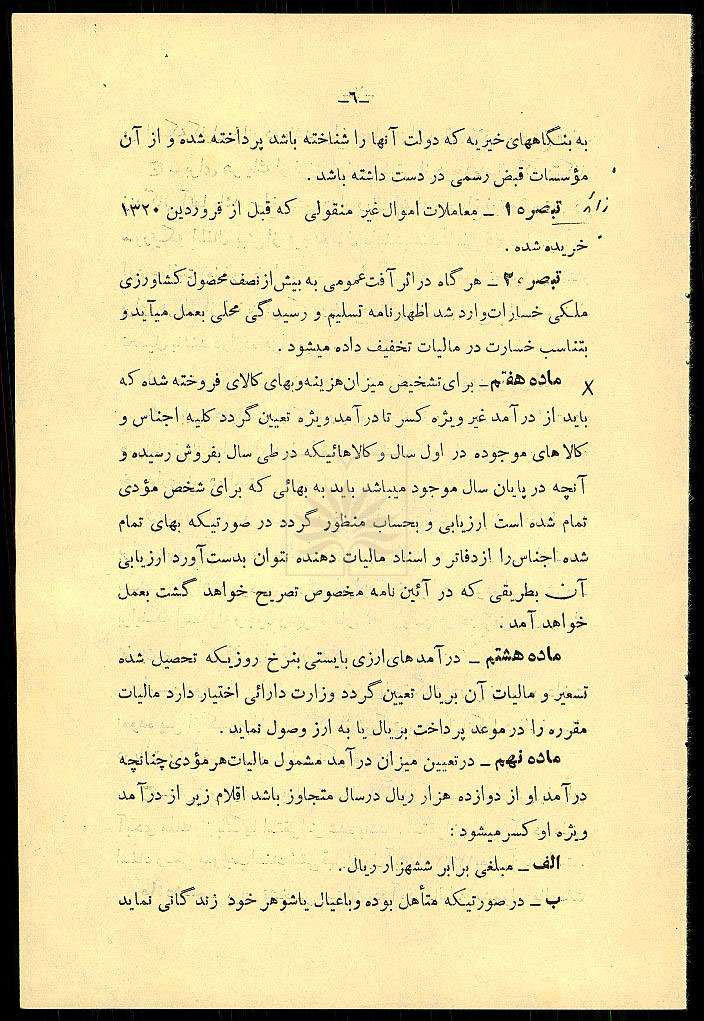 ـ٦ـ
به بنگاههای خیریه که دولت آنها را شناخته باشد پرداخته شده و از آن
مؤسسات قبض رسمی در دست داشته باشد .
تبصره ۱ ـ معاملات اموال غیر منقولی که قبل از فروردین ۱۳۲۰
خریده شده .
تبصره ۲ ـ هر گاه در اثر آفت عمومی به بیش از نصف محصول کشاورزی
ملکی خسارات وارد شد اظهارنامه تسلیم و رسیدگی محلی بعمل میآید و
بتناسب خسارت در مالیات تخفیف داده میشود .
ماده هفتم ـ برای تشخیص میزان هزینه و بهای کالای فروخته شده که
باید از درآمد غیر ویژه کسر تا درآمد ویژه تعیین گردد کلیه اجناس و
کالاهای موجوده در اول سال و کالاهائیکه در طی سال بفروش رسیده و
آنچه در پایان سال موجود میباشد باید به بهائی که برای شخص مؤدی
تمام شده است ارزیابی و بحساب منظور گردد در صورتیکه بهای تمام
شده اجناس را از دفاتر و اسناد مالیات دهنده نتوان بدست آورد ارزیابی
آن بطریقی که در آئین نامه مخصوص تصریح خواهد گشت بعمل
خواهد آمد .
ماده هشتم ـ درآمدهای ارزی بایستی بنرخ روزیکه تحصیل شده
تسعیر و مالیات آن بریال تعیین گردد وزارت دارائی اختیار دارد مالیات
مقرره را در موعد پرداخت بریال یا به ارز وصول نماید .
ماده نهم ـ در تعیین میزان درآمد مشمول مالیات هر مؤدی چنانچه
درآمد او از دوازده هزار ریال در سال متجاوز باشد اقلام زیر از درآمد
ویژه او کسر میشود :
الف ـ مبلغی برابر ششهزار ریال .
ب ـ در صورتیکه متأهل بوده و با عیال یا شوهر خود زندگانی نماید